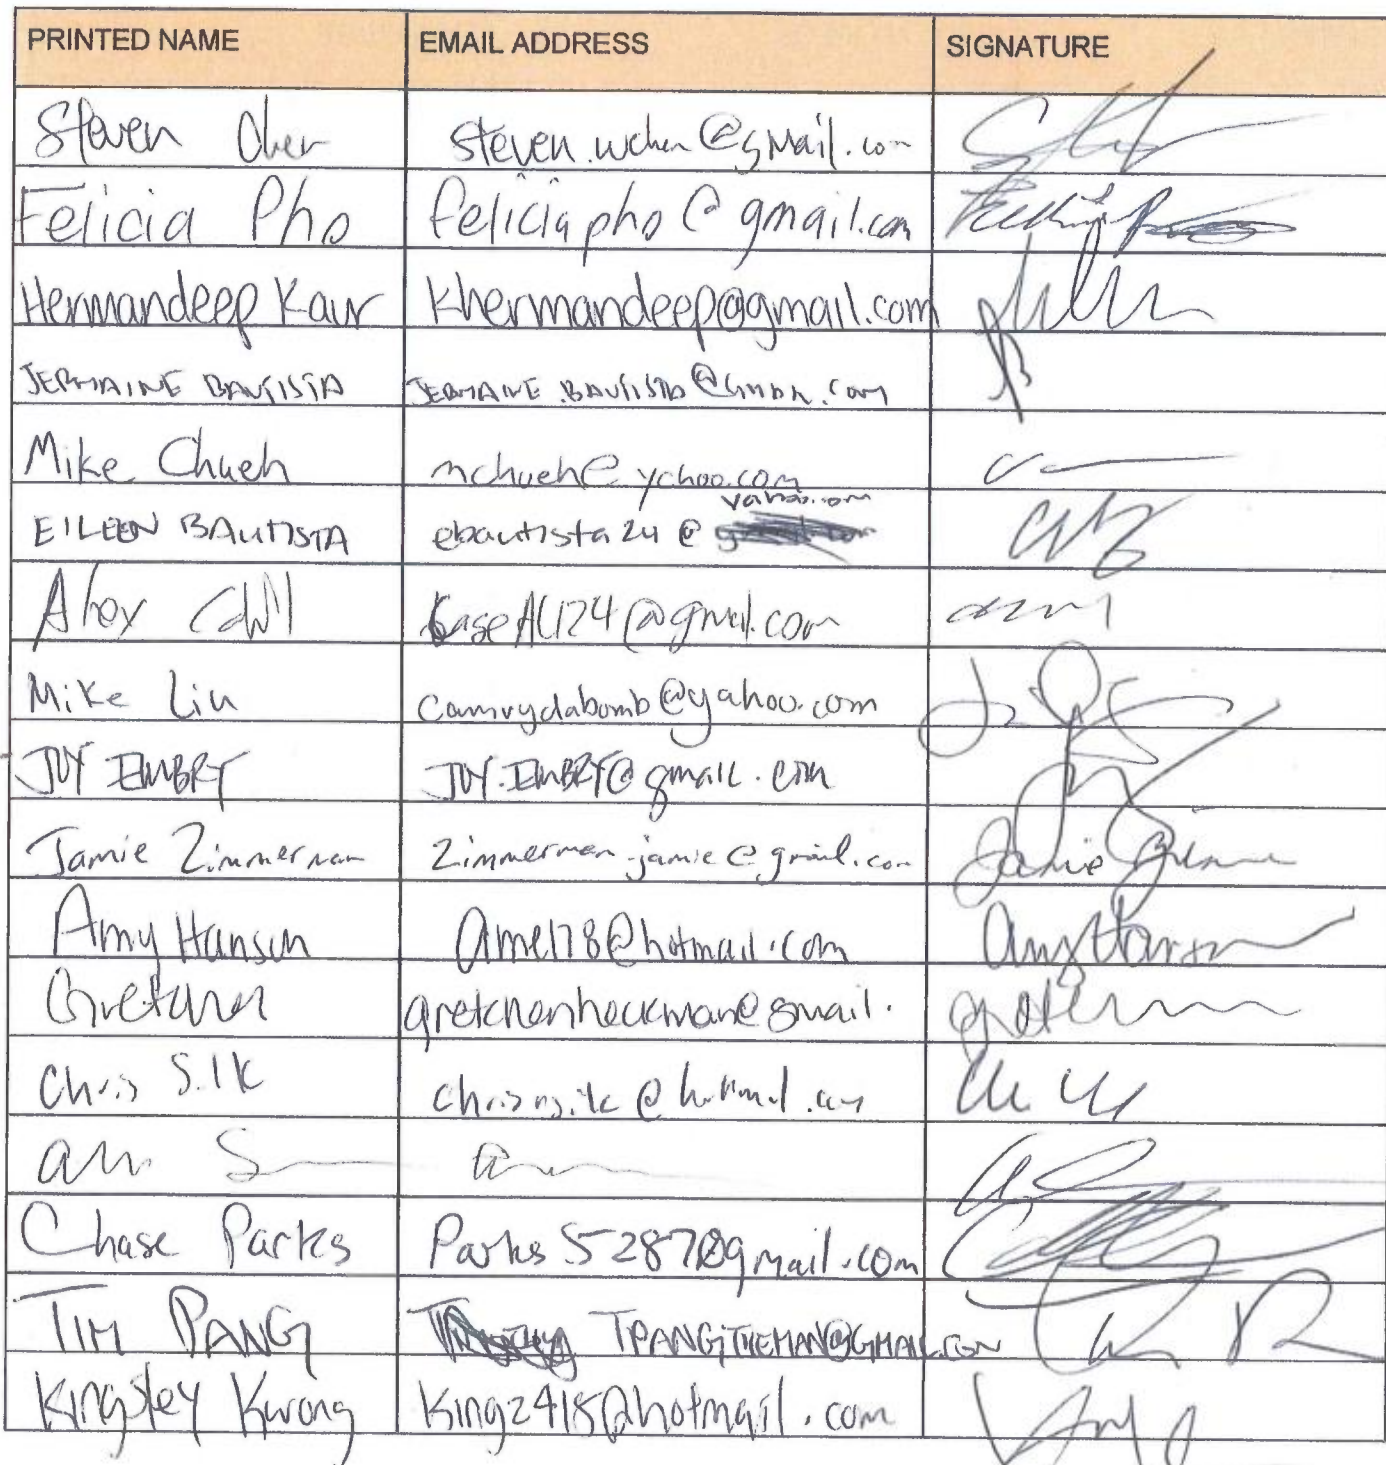 PRINTED NAME EMAIL ADDRESS SIGNATURE
Steven Chen steven.wchen@gmail.com
Felicia Pho feliciapho@gmail.com
Hermandeep Kaur Khermandeep@gmail.com
JERMAINE BAUTISTA JERMAINE.BAUTISTA@GMAIL.com
Mike Chueh mchueh@yahoo.com
yahoo.com
EILEEN BAUTISTA ebautista24@
Alex
Mike Liu camrydabomb@yahoo.com
JOY EMBRY JOY.EMBRY@gmail.com
Jamie Zimmerman Zimmerman.jamie@gmail.com Jamie
Amy Hanson ame178@hotmail.com Amy Hanson
Gretchen gretchenheckman@gmail.
Chris Silk
Chase Parks Parks5287@gmail.com
TIM PANG TPANGTHEMAN@GMAIL.COM
Kingsley Kwong King2415@hotmail.com